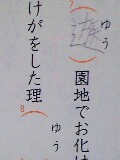 7
ゆう
遊園地でお化け
けがをした理
8
ゆう